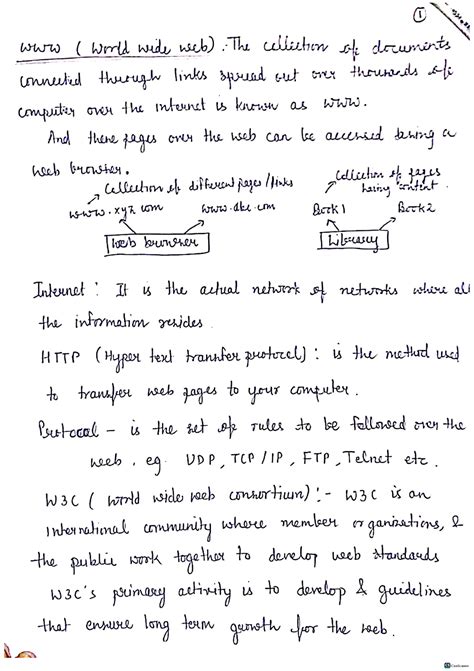 1
WWW (World wide web). The collection of documents
connected through links spread out over thousands of
computer over the internet is known as WWW.
And these pages over the web can be accessed using a
web browser.
Collection of different pages/links
Collection of pages
having content
www.xyz.com www.abc.com Book1 Book2
Web browser Library
Internet : It is the actual network of networks where all
the information resides.
HTTP (Hyper text transfer protocol) : is the method used
to transfer web pages to your computer.
Protocol – is the set of rules to be followed over the
web. eg. UDP, TCP/IP, FTP, Telnet etc.
W3C ( World wide web consortium) :- W3C is an
International community where member organizations, &
the public work together to develop web standards
W3C's primary activity is to develop & guidelines
that ensure long term growth for the web.
CamScanner